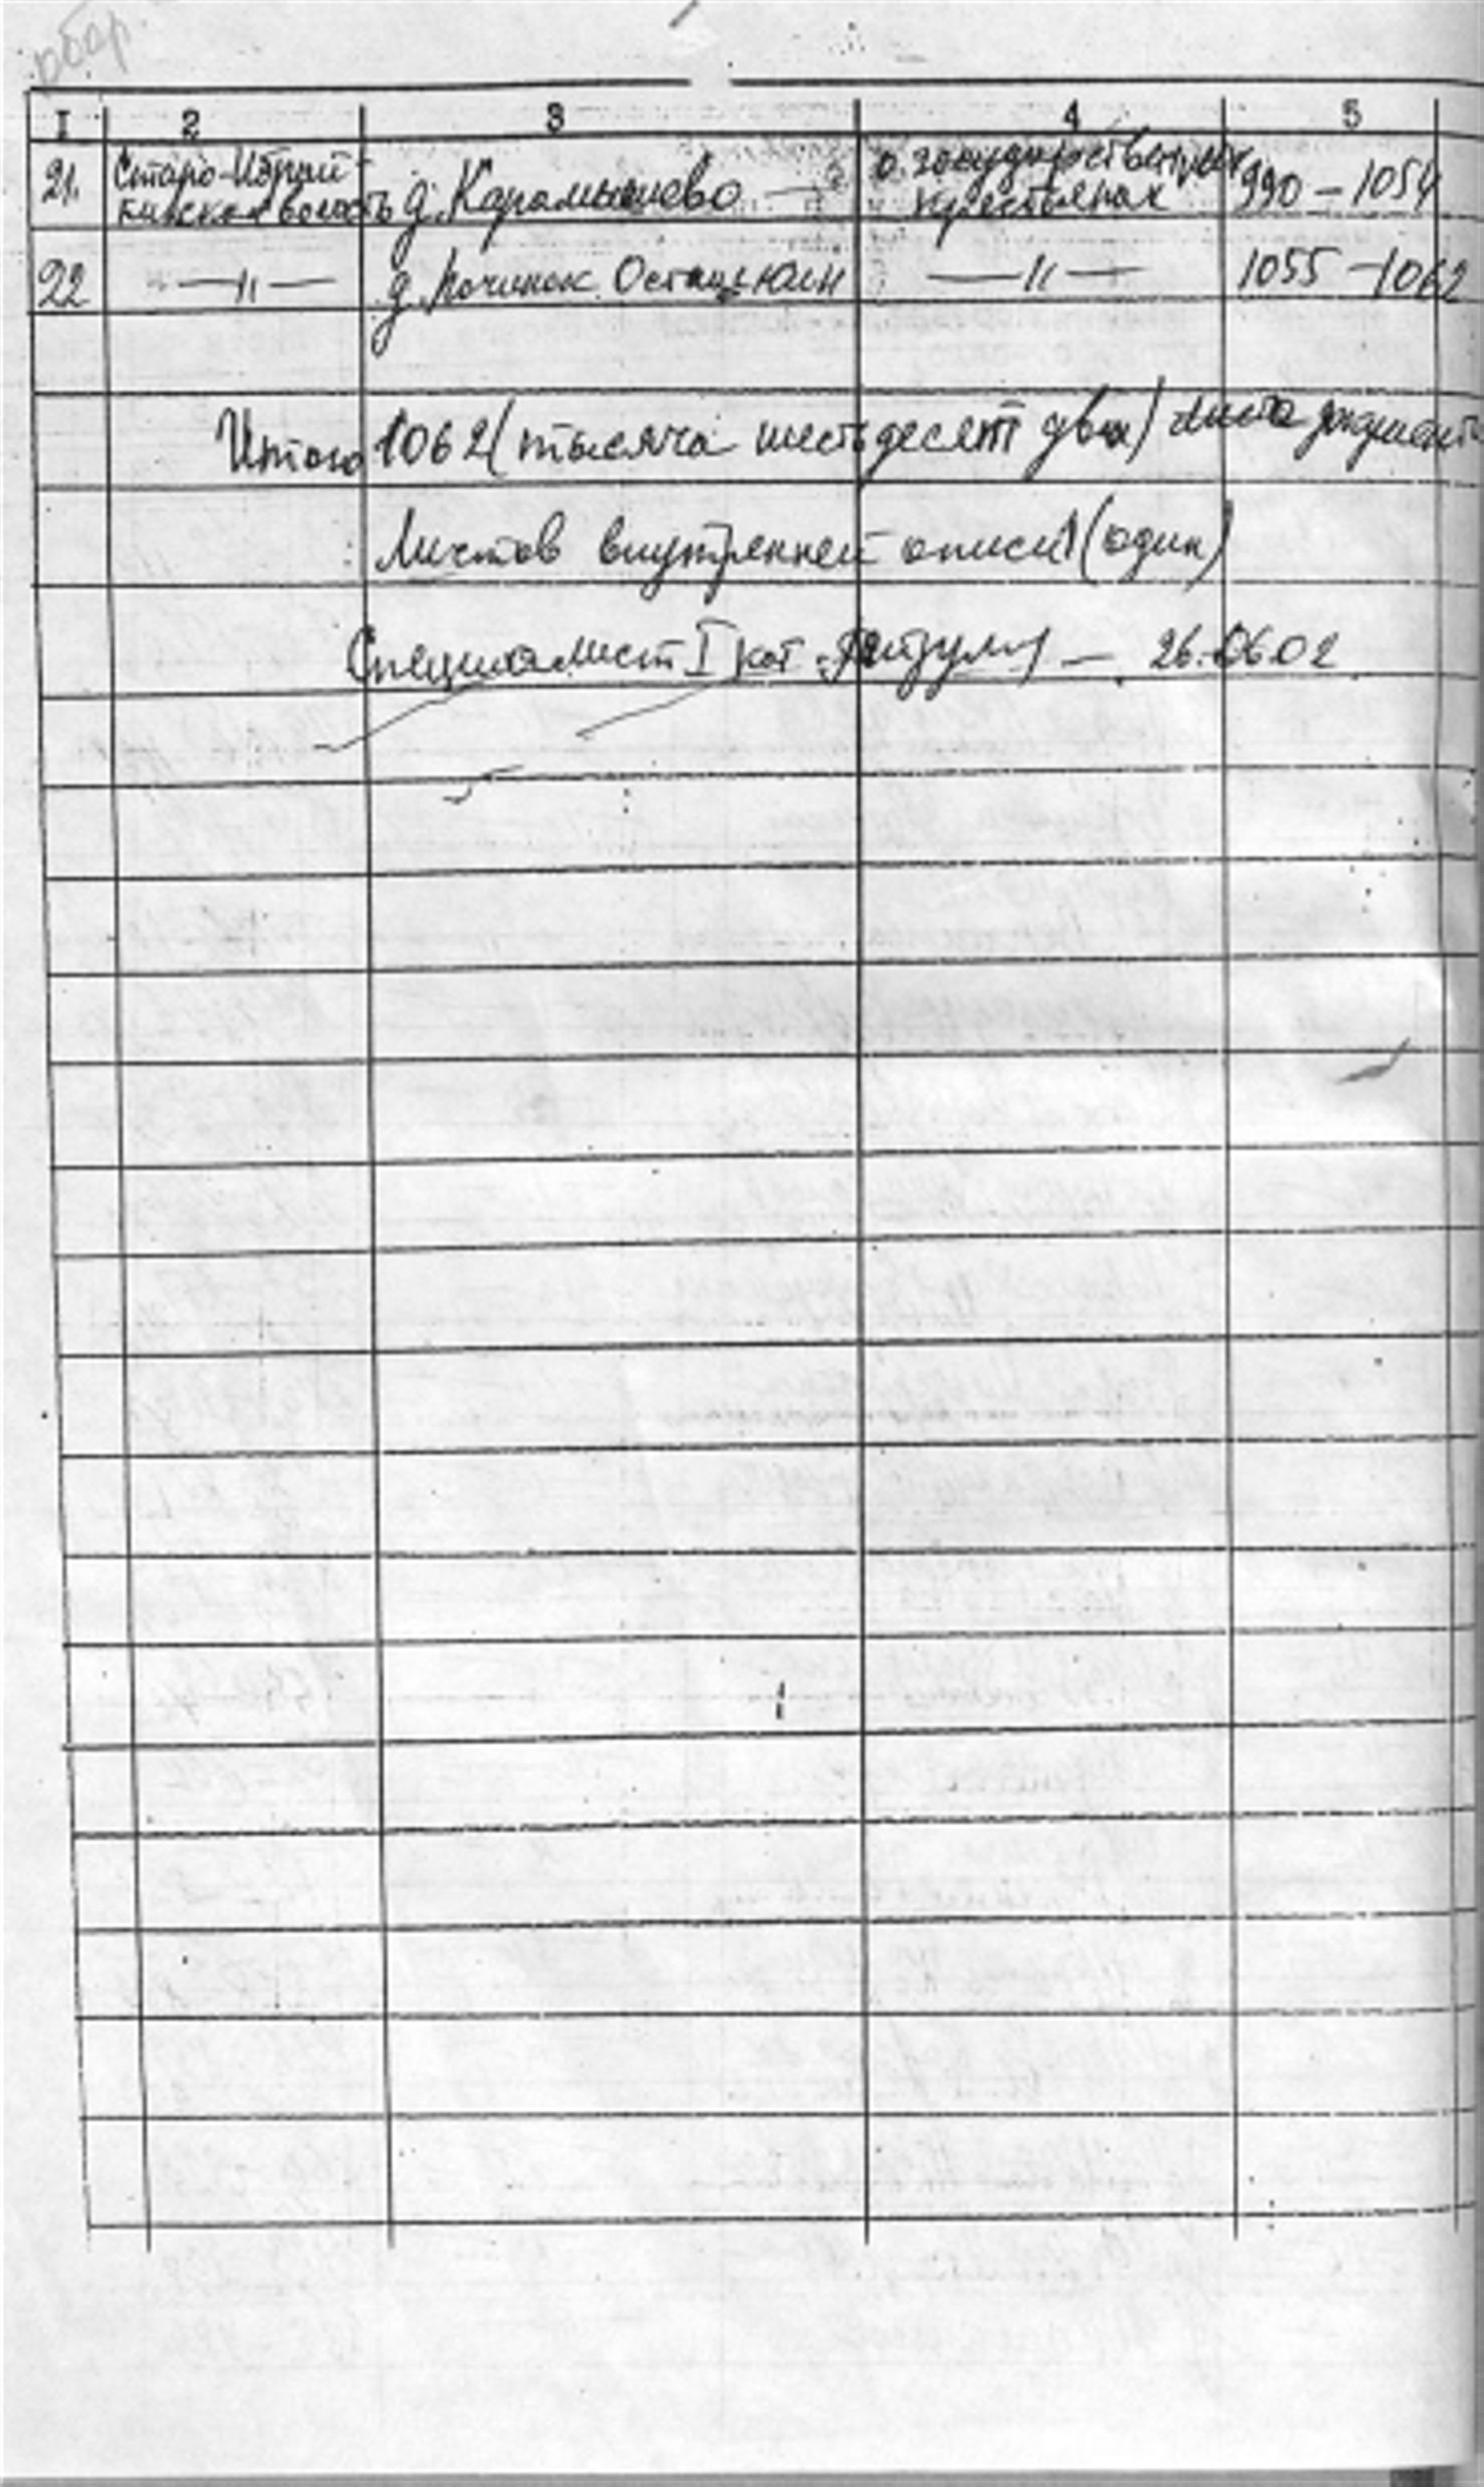 обор.
I 2 3 4 5
21. Старо-Ибрай- д. Карамышево о государственных 990 – 1054
кинская волость крестьянах
22 —〃— д. Починок Осташ-Юлн —〃— 1055 – 1062
Итого 1062 (тысяча шестьдесят два) листа документ
Листов внутренней описи 1 (один)
Специалист I кат. 26.06.02